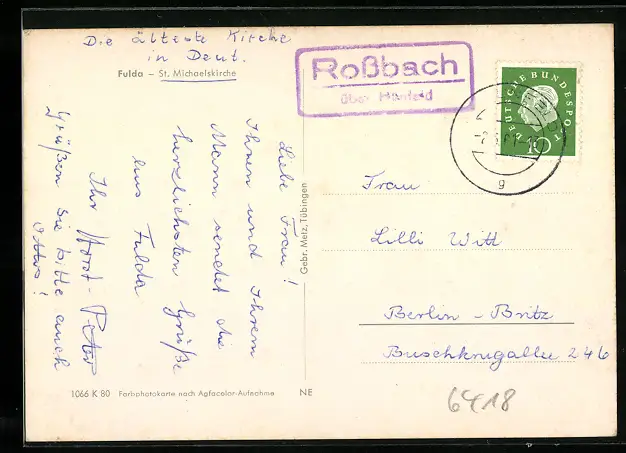 Die älteste Kirche
in Deut.
Fulda – St. Michaelskirche
Liebe Frau!
Ihnen und Ihrem
Mann sendet die
herzlichsten Grüße
aus Fulda
Ihr Horst-Peter
Grüßen Sie bitte auch
1066 K 80 Farbphotokarte nach Agfacolor-Aufnahme
NE
Gebr. Metz, Tübingen
Roßbach
über Hünfeld
DEUTSCHE BUNDESPOST
10
g
Frau
Lilli Witt
Berlin - Britz
Buschkrugallee 246
6418